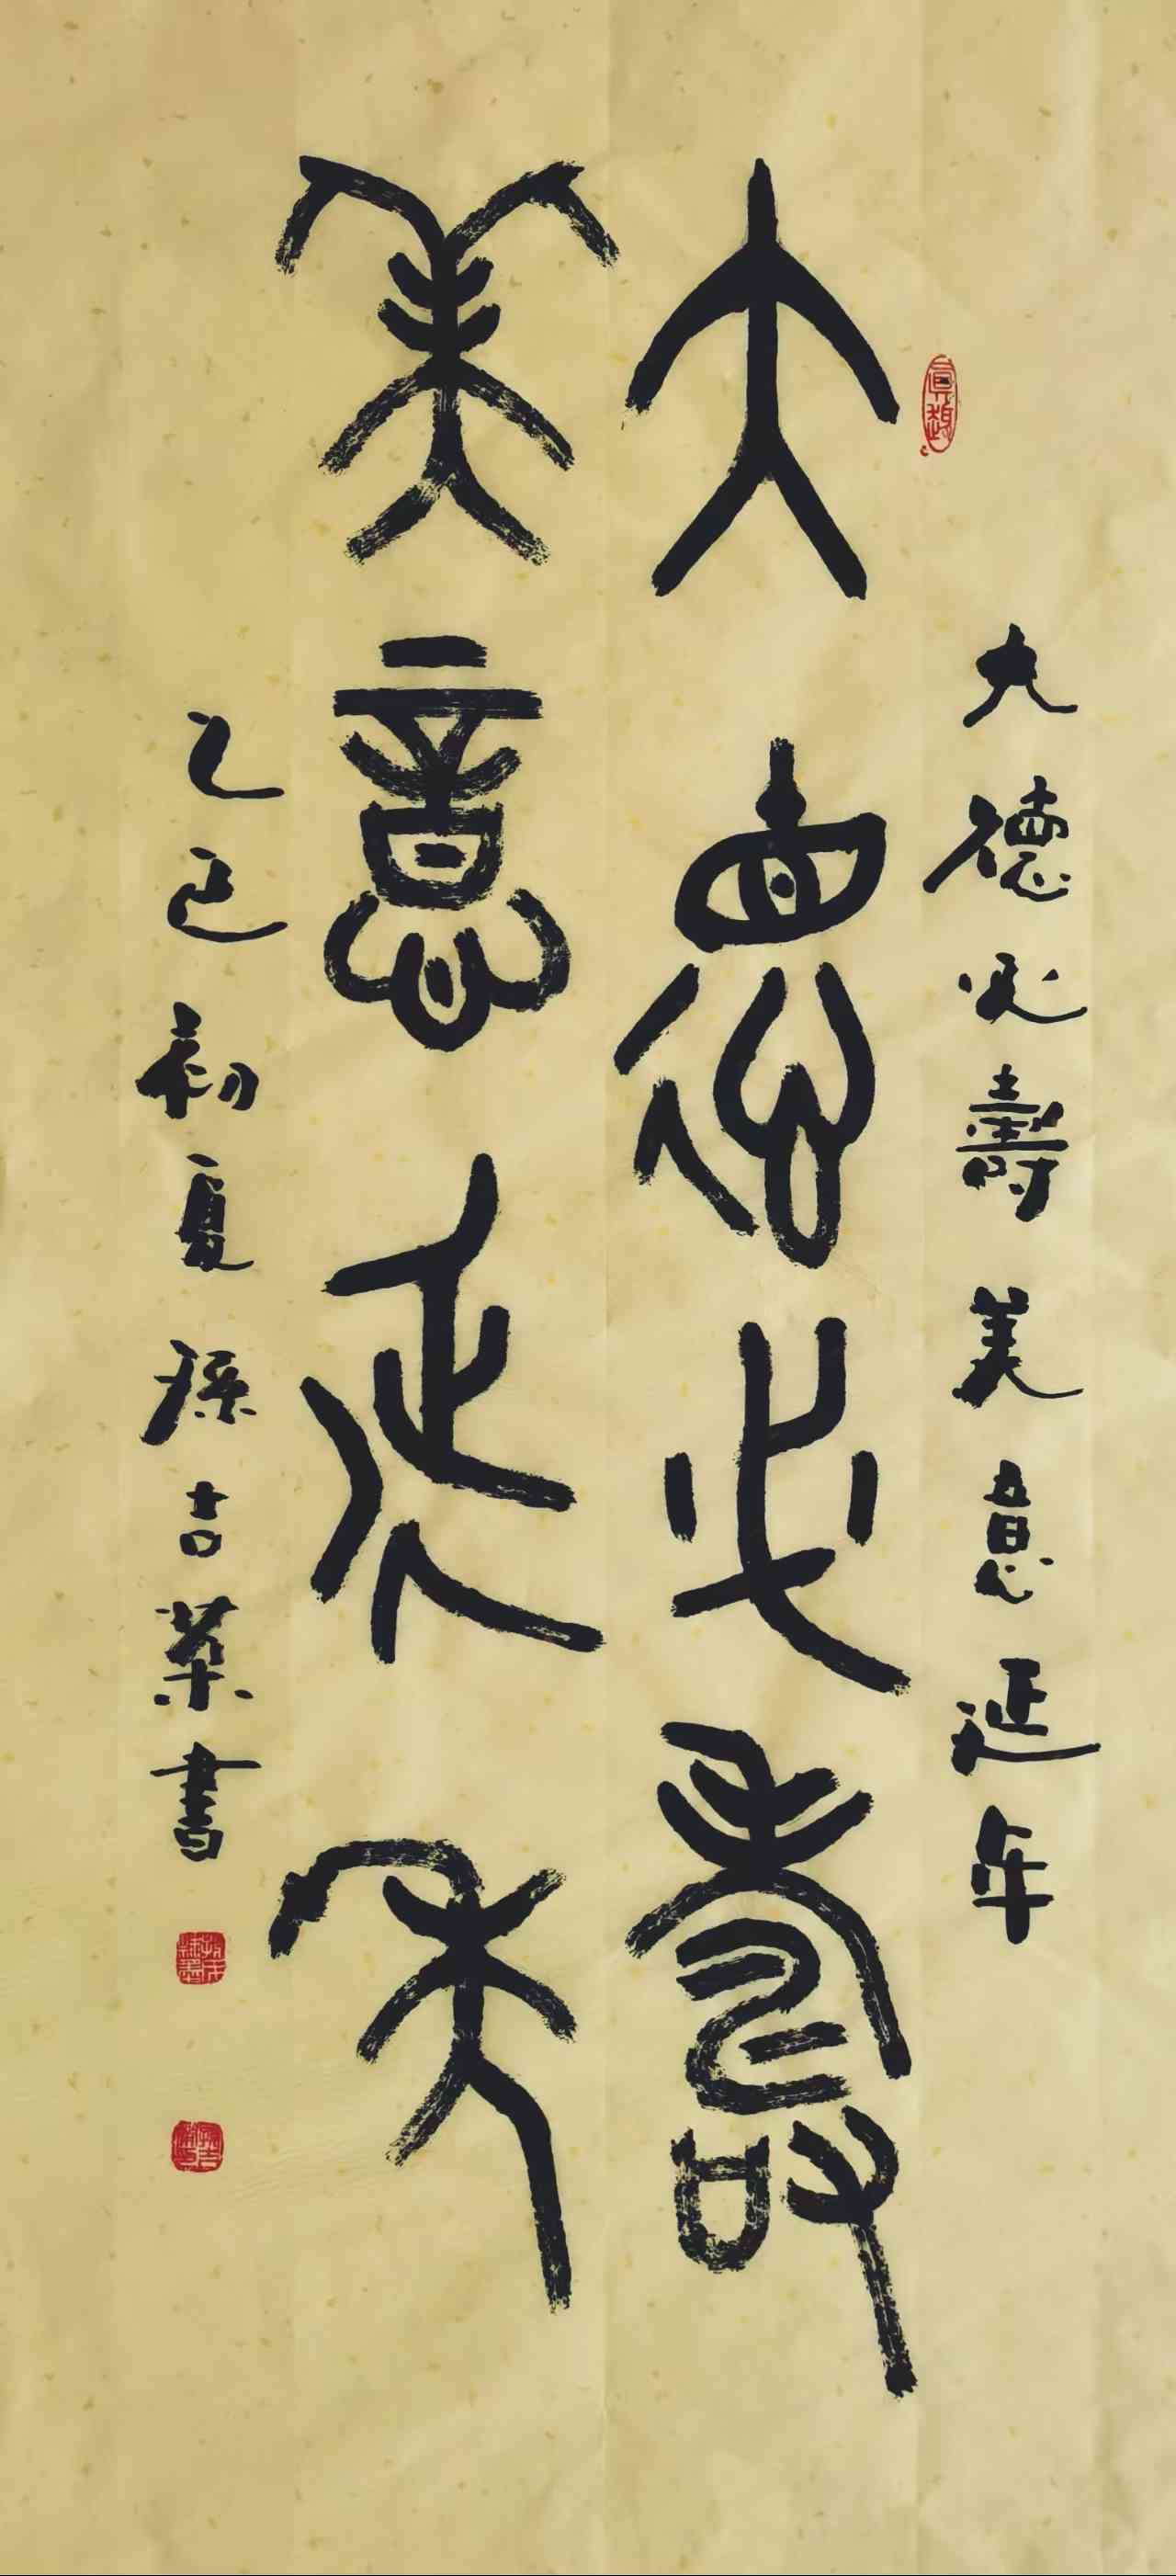 大德必壽美意延年
大德必壽
美意延年
乙巳初夏孫吉榮書